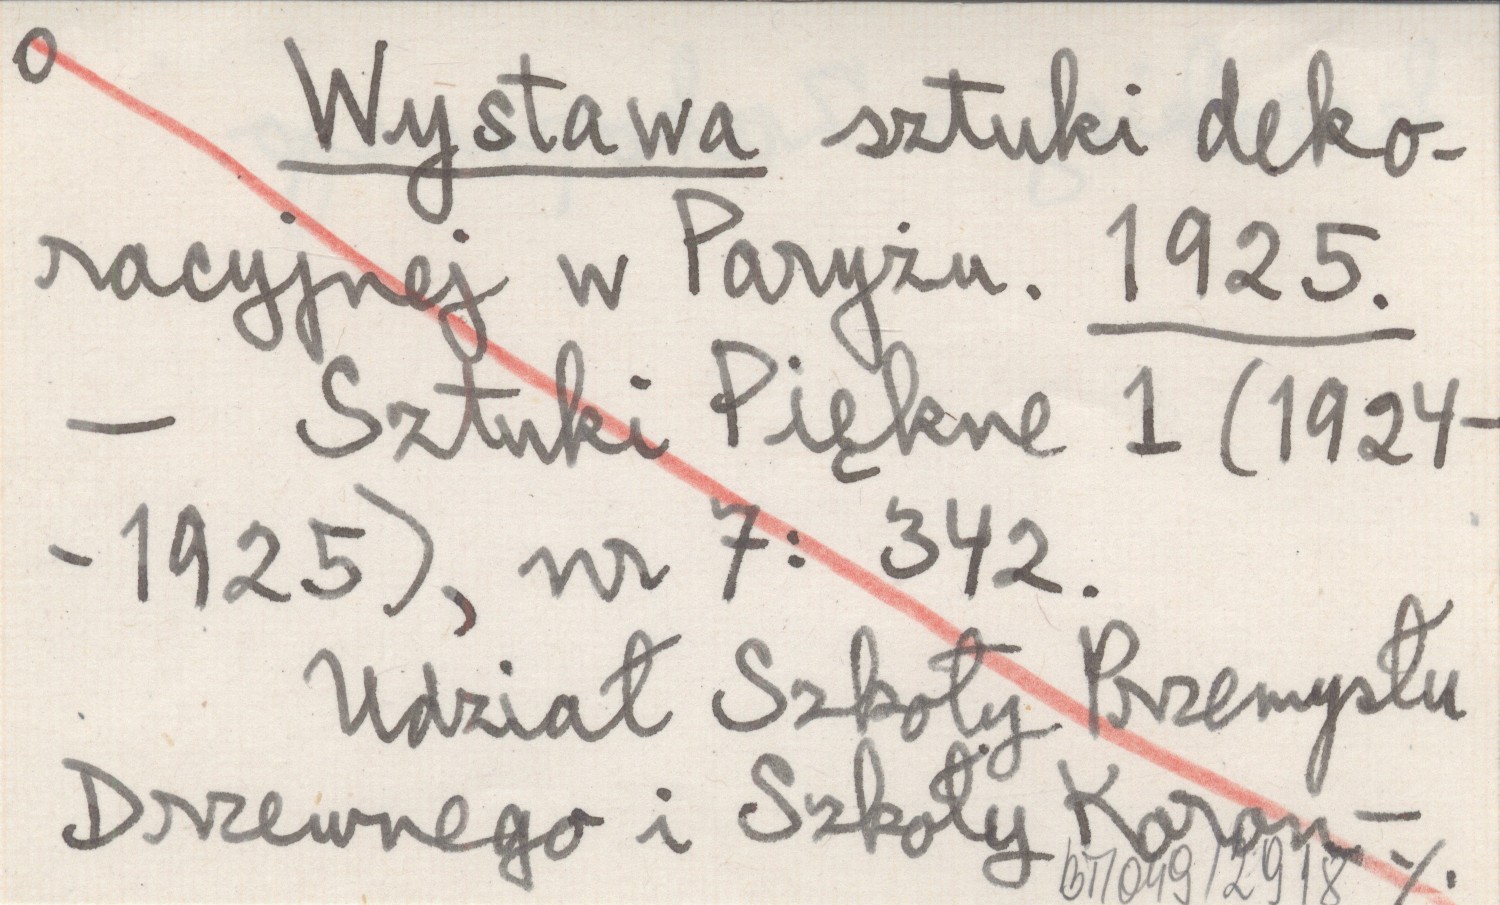 o Wystawa sztuki deko-
racyjnej w Paryżu. 1925.
— Sztuki Piękne 1 (1924-
-1925), nr 7: 342.
Udział Szkoły Przemysłu
Drzewnego i Szkoły Koron-
./.